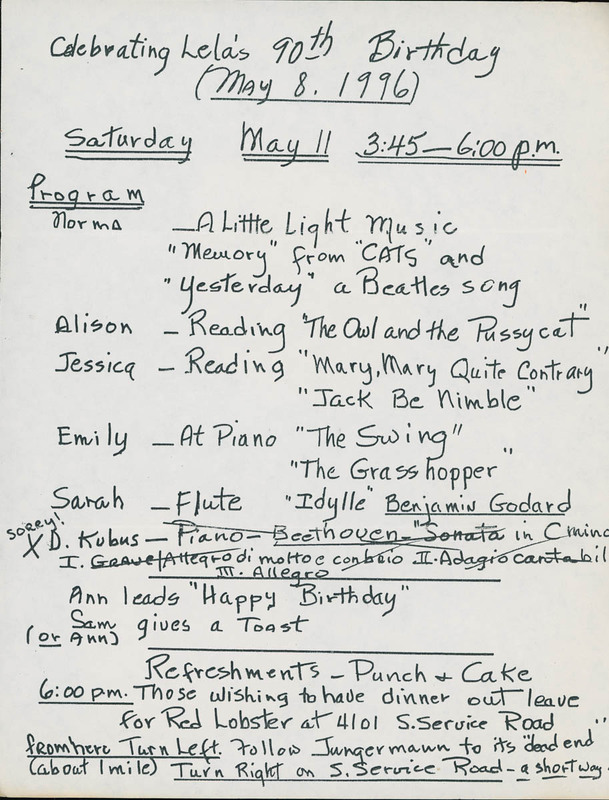 Celebrating Lela's 90th Birthday
(May 8. 1996)
Saturday May 11 3:45—6:00 p.m.
Program
Norma — A Little Light Music
"Memory" from "CATS" and
"Yesterday" a Beatles song
Alison — Reading "The Owl and the Pussycat"
Jessica — Reading "Mary, Mary Quite Contrary"
"Jack Be Nimble"
Emily — At Piano "The Swing"
"The Grasshopper"
Sarah — Flute "Idylle" Benjamin Godard
sorry!
X D. Kubus — Piano — Beethoven — "Sonata in C mino
I. Grave/Allegro di molto e con brio II. Adagio cantabil
III. Allegro
Ann leads "Happy Birthday"
Sam gives a Toast
(or Ann)
Refreshments — Punch + Cake
6:00 p.m. Those wishing to have dinner out leave
for Red Lobster at 4101 S. Service Road
from here Turn Left. Follow Jungermann to its "dead end"
(about 1 mile) Turn Right on S. Service Road — a short way.